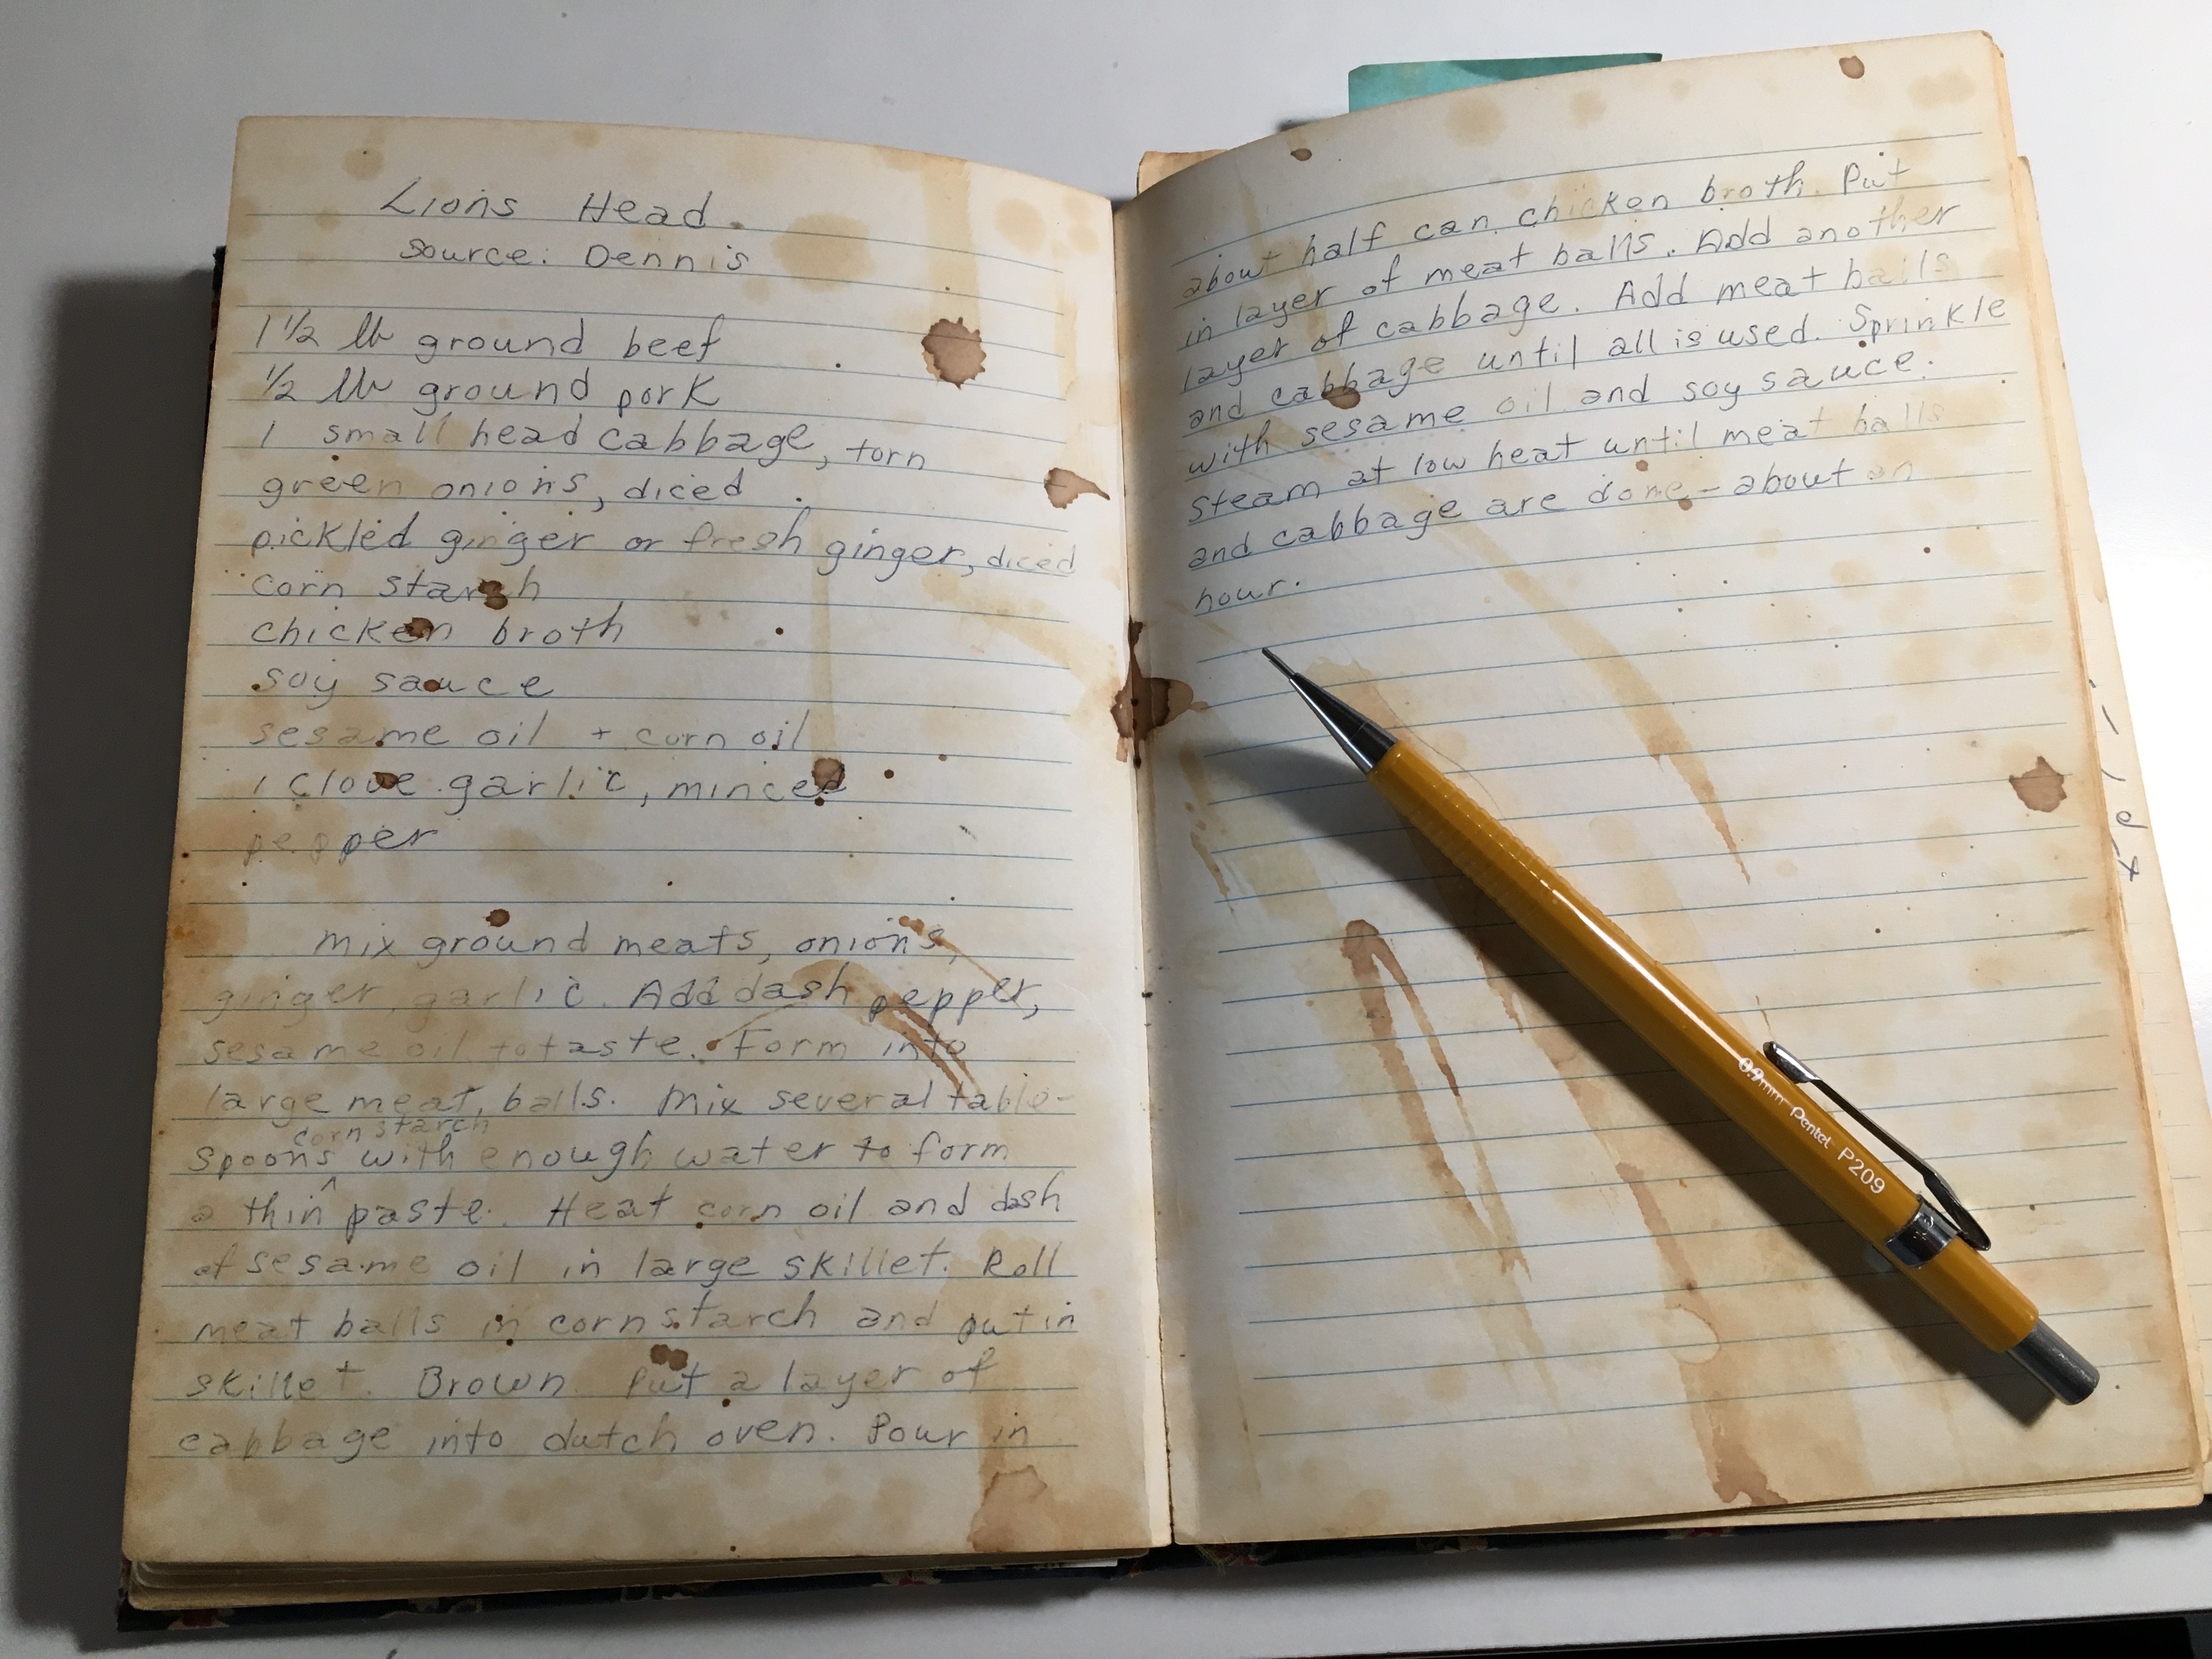 Lions Head
Source: Dennis
1 1/2 lb ground beef
1/2 lb ground pork
1 small head cabbage, torn
green onions, diced
pickled ginger or fresh ginger, diced
corn starch
chicken broth
soy sauce
sesame oil + corn oil
1 clove garlic, minced
pepper
Mix ground meats, onions,
ginger, garlic. Add dash pepper,
sesame oil to taste. Form into
large meat balls. Mix several table-
corn starch
spoons ^ with enough water to form
a thin paste. Heat corn oil and dash
of sesame oil in large skillet. Roll
meat balls in cornstarch and put in
skillet. Brown. Put a layer of
cabbage into dutch oven. Pour in
about half can chicken broth. Put
in layer of meat balls. Add another
layer of cabbage. Add meat balls
and cabbage until all is used. Sprinkle
with sesame oil and soy sauce.
Steam at low heat until meat balls
and cabbage are done - about an
hour.
0.9mm Pentel P209